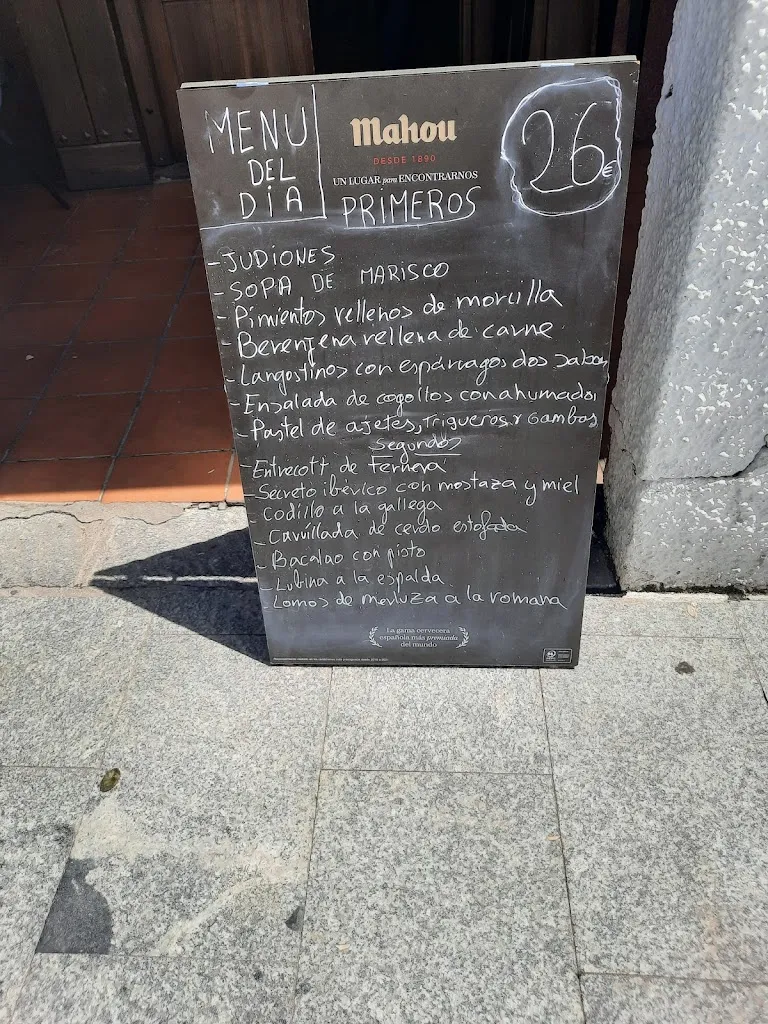 MENU
DEL
DIA
Mahou
DESDE 1890
UN LUGAR para ENCONTRARNOS
26€
PRIMEROS
- JUDIONES
- SOPA DE MARISCO
- Pimientos rellenos de morcilla
- Berenjena rellena de carne
- Langostinos con espárragos dos salsas
- Ensalada de cogollos con ahumados
- Pastel de ajetes, Trigueros y Gambas
Segundos
- Entrecott de Ternera
- Secreto ibérico con mostaza y miel
- Codillo a la gallega
- Carrillada de cerdo estofada
- Bacalao con pisto
- Lubina a la espalda
- Lomos de merluza a la romana
La gama cervecera
española más premiada
del mundo